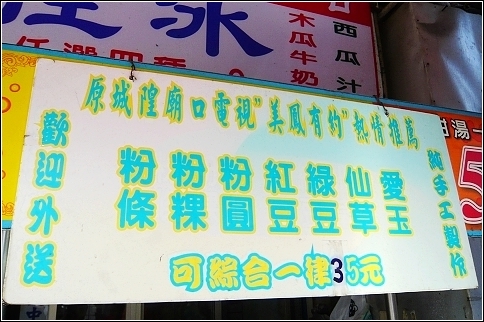 冰
任選四種
木瓜牛奶
西瓜汁
原城隍廟口電視"美鳳有約"熱情推薦
歡迎外送
粉條
粉粿
粉圓
紅豆
綠豆
仙草
愛玉
純手工製作
可綜合一律35元
甜湯一
5
中